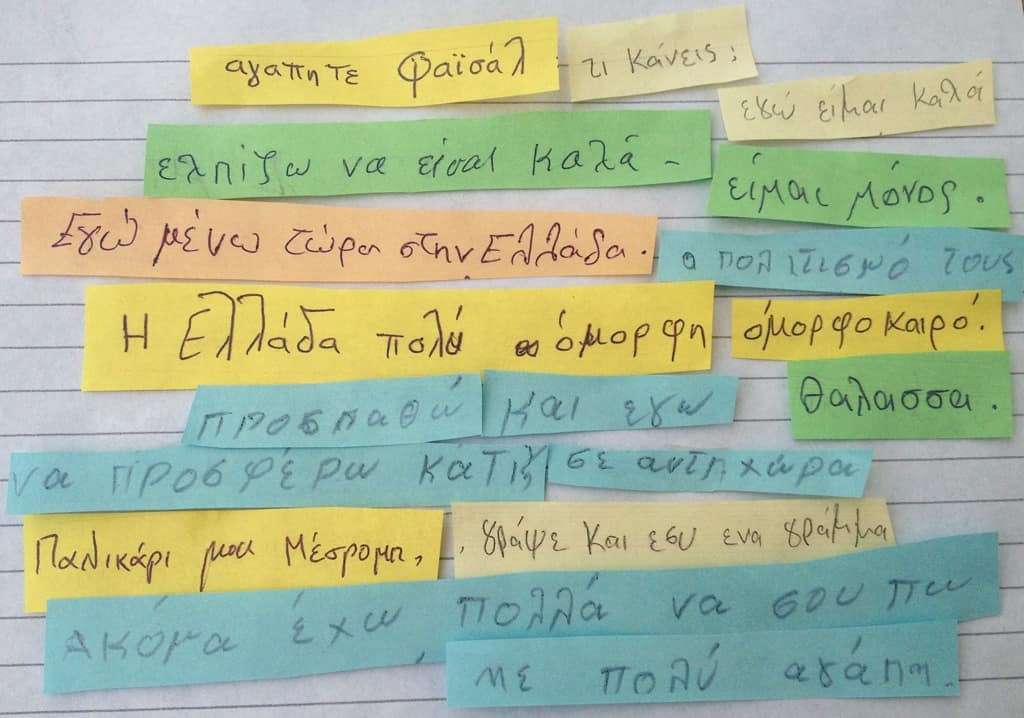 αγαπητε Φαϊσάλ τι κάνεις;
εγώ είμαι καλά
ελπίζω να είσαι καλά - είμαι μόνος.
Εγώ μένω τώρα στην Ελλάδα. ο πολιτισμό τους
Η Ελλάδα πολύ όμορφη όμορφο καιρό.
προσπαθώ και εγω θάλασσα.
να προσφέρω κατι σε αυτη χώρα
Παλικάρι μου Μέσρομπ, , γράψε και εσυ ενα γράμμα
Ακόμα έχω πολλά να σου πω
με πολύ αγάπη.